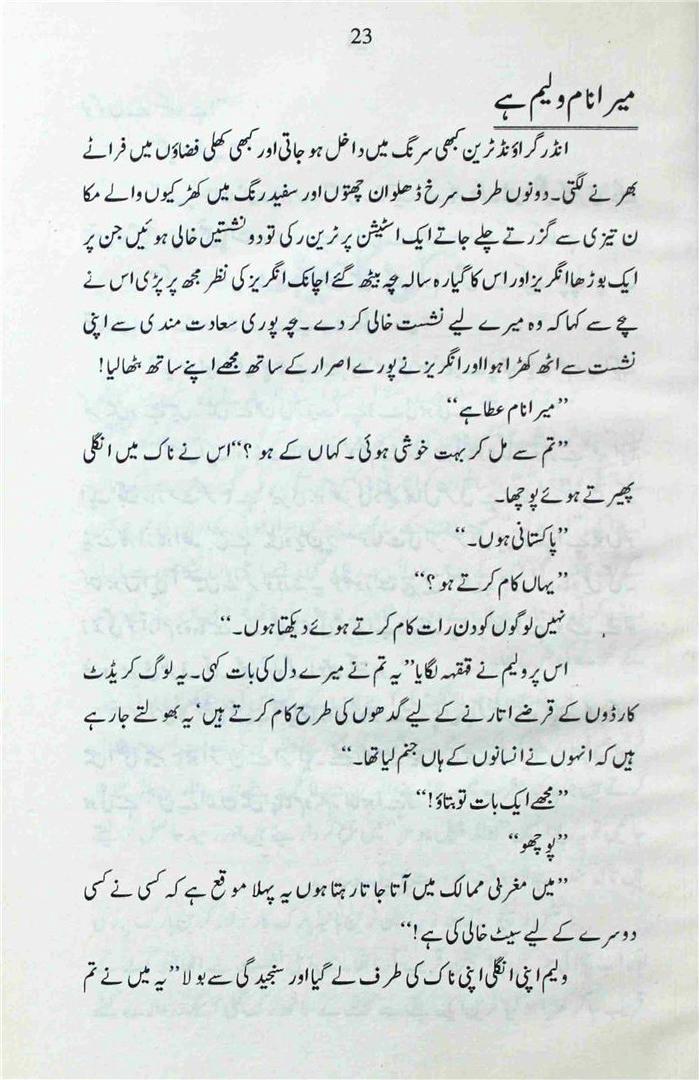 23
میرا نام ولیم ہے
انڈر گراؤنڈ ٹرین کبھی سرنگ میں داخل ہو جاتی اور کبھی کھلی فضاؤں میں فراٹے
بھرنے لگتی۔ دونوں طرف سرخ ڈھلوان چھتوں اور سفید رنگ میں کھڑکیوں والے مکا
ن تیزی سے گزرتے چلے جاتے ایک اسٹیشن پر ٹرین رکی تو دو نشستیں خالی ہوئیں جن پر
ایک بوڑھا انگریز اور اس کا گیارہ سالہ چہ بیٹھ گئے اچانک انگریز کی نظر مجھ پر پڑی اس نے
چے سے کہا کہ وہ میرے لیے نشست خالی کر دے۔ چہ پوری سعادت مندی سے اپنی
نشست سے اٹھ کھڑا ہوا اور انگریز نے پورے اصرار کے ساتھ مجھے اپنے ساتھ بٹھا لیا!
”میرا نام عطا ہے“
”تم سے مل کر بہت خوشی ہوئی۔ کہاں کے ہو ؟“ اس نے ناک میں انگلی
پھیرتے ہوئے پوچھا۔
”پاکستانی ہوں۔“
”یہاں کام کرتے ہو ؟“
نہیں لوگوں کو دن رات کام کرتے ہوئے دیکھتا ہوں۔“
اس پر ولیم نے قہقہہ لگایا ”یہ تم نے میرے دل کی بات کہی۔ یہ لوگ کریڈٹ
کارڈوں کے قرضے اتارنے کے لیے گدھوں کی طرح کام کرتے ہیں‘ یہ بھولتے جا رہے
ہیں کہ انہوں نے انسانوں کے ہاں جنم لیا تھا۔“
”مجھے ایک بات تو بتاؤ!“
”پوچھو“
”میں مغربی ممالک میں آتا جاتا رہتا ہوں یہ پہلا موقع ہے کہ کسی نے کسی
دوسرے کے لیے سیٹ خالی کی ہے!“
ولیم اپنی انگلی اپنی ناک کی طرف لے گیا اور سنجیدگی سے بولا ”یہ میں نے تم